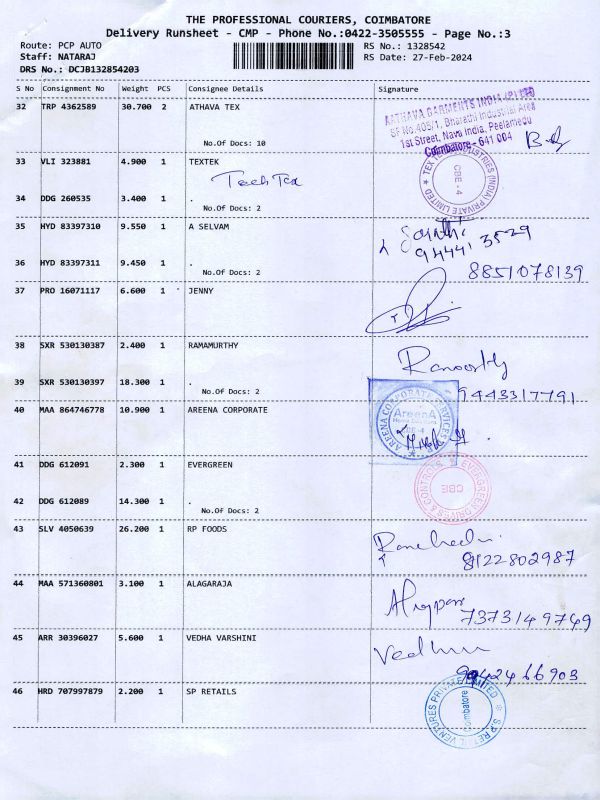 THE PROFESSIONAL COURIERS, COIMBATORE
Delivery Runsheet - CMP - Phone No.:0422-3505555 - Page No.:3
Route: PCP AUTO RS No.: 1328542
Staff: NATARAJ RS Date: 27-Feb-2024
DRS No.: DCJB132854203
S No Consignment No Weight PCS Consignee Details Signature
32 TRP 4362589 30.700 2 ATHAVA TEX
AATHAVA GARMENTS INDIA (P) LTD
SF No.405/1, Bharathi Industrial Area
1st Street, Nava India, Peelamedu
Coimbatore - 641 004
No.Of Docs: 10
33 VLI 323881 4.900 1 TEXTEK
Tech Tex
CBE - 4
34 DDG 260535 3.400 1 .
No.Of Docs: 2
35 HYD 83397310 9.550 1 A SELVAM
94441 3529
36 HYD 83397311 9.450 1 .
No.Of Docs: 2
8851078139
37 PRO 16071117 6.600 1 JENNY
38 SXR 530130387 2.400 1 RAMAMURTHY
39 SXR 530130397 18.300 1 .
No.Of Docs: 2
9443317791
40 MAA 864746778 10.900 1 AREENA CORPORATE
AREENA CORPORATE SERVICES
AreenA
41 DDG 612091 2.300 1 EVERGREEN
EVERGREEN DRIVES & CONTROLS
CBE
42 DDG 612089 14.300 1 .
No.Of Docs: 2
43 SLV 4050639 26.200 1 RP FOODS
8122802987
44 MAA 571360801 3.100 1 ALAGARAJA
7373149749
45 ARR 30396027 5.600 1 VEDHA VARSHINI
46 HRD 707997879 2.200 1 SP RETAILS
S.P. RETAIL VENTURES PRIVATE LIMITED
Coimbatore